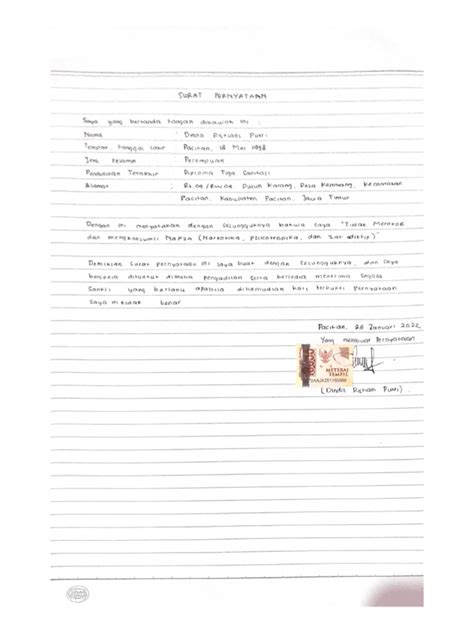 SURAT PERNYATAAN
Saya yang bertanda tangan dibawah ini :
Nama : Dinda Putri
Tempat, tanggal lahir : Pacitan, 18 Mei 1998
Jenis Kelamin : Perempuan
Pendidikan Terakhir : Diploma Tiga Sanitasi
Alamat : Dusun Karang, Desa Kembang, Kecamatan
Pacitan, Kabupaten Pacitan, Jawa Timur
Dengan ini menyatakan dengan sesungguhnya bahwa saya "Tidak Merokok
dan mengkonsumsi NAPZA (Narkotika, Psikotropika, dan Zat Adiktif)"
Demikian surat pernyataan ini saya buat dengan sesungguhnya, dan saya
bersedia dituntut dimuka pengadilan serta bersedia menerima segala
sanksi yang berlaku apabila dikemudian hari terbukti Pernyataan
saya ini tidak benar
Pacitan, 20 Januari 2022
Yang membuat Pernyataan
10000
METERAI
TEMPEL
(Dinda Putri)